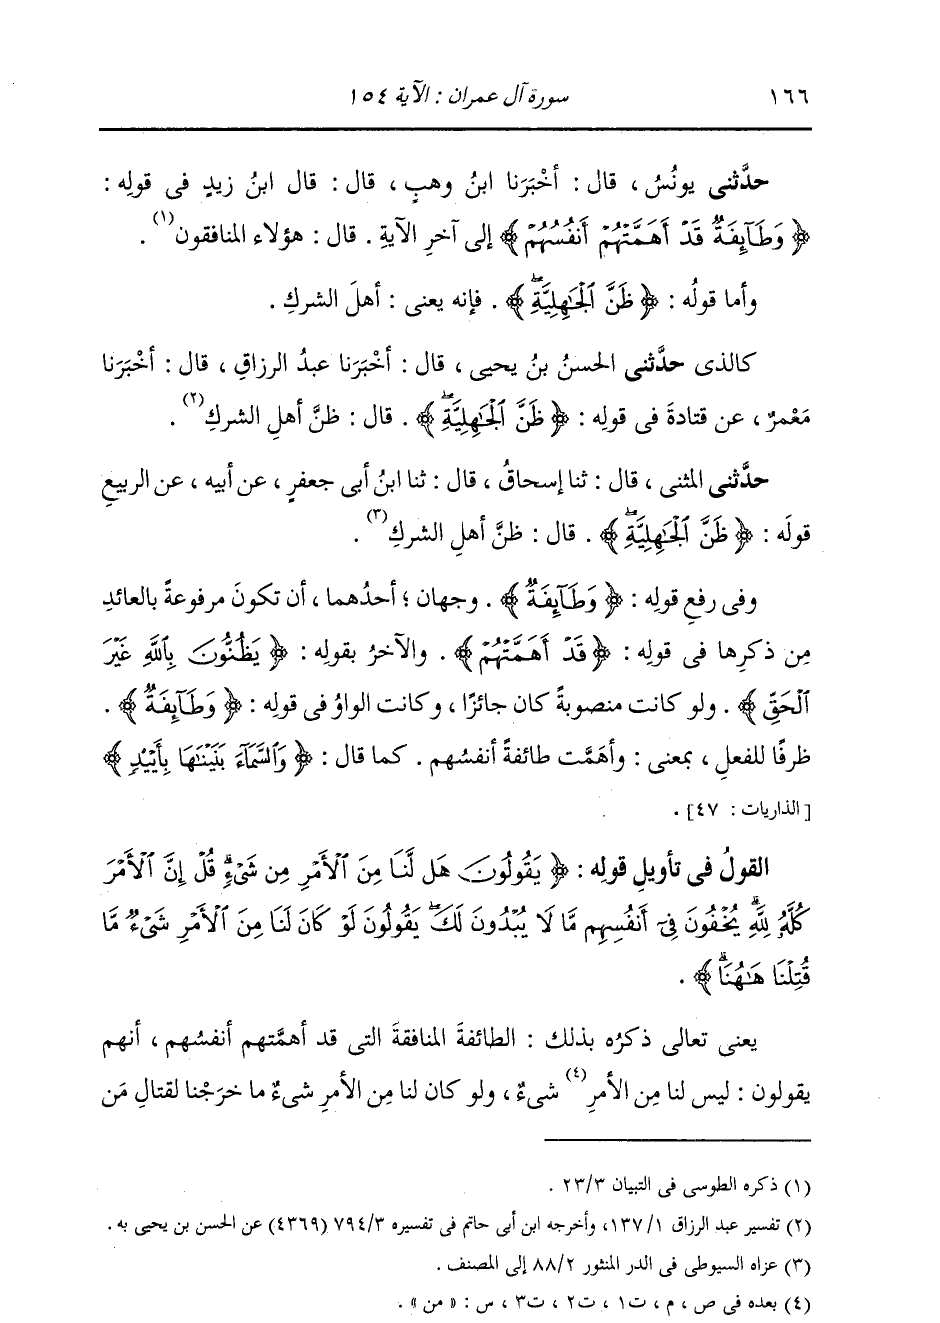 ١٦٦ سورة آل عمران : الآية ١٥٤
حدَّثنى يونُسُ ، قال : أخْبَرَنا ابنُ وهبٍ ، قال : قال ابنُ زيدٍ فى قولِه :
﴿ وَطَآئِفَةٌ قَدۡ أَهَمَّتۡهُمۡ أَنفُسُهُمۡ ﴾ إلى آخرِ الآيةِ . قال : هؤلاء المنافقون(١) .
وأما قولُه : ﴿ ظَنَّ ٱلۡجَٰهِلِيَّةِۖ ﴾ . فإنه يعنى : أهلَ الشركِ .
كالذى حدَّثنى الحسنُ بنُ يحيى ، قال : أخْبَرَنا عبدُ الرزاقِ ، قال : أخْبَرَنا
مَعْمرٌ ، عن قتادةَ فى قولِه : ﴿ ظَنَّ ٱلۡجَٰهِلِيَّةِۖ ﴾ . قال : ظنَّ أهلِ الشركِ(٢) .
حدَّثنى المثنى ، قال : ثنا إسحاقُ ، قال : ثنا ابنُ أبى جعفرٍ ، عن أبيه ، عن الربيعِ
قولَه : ﴿ ظَنَّ ٱلۡجَٰهِلِيَّةِۖ ﴾ . قال : ظنَّ أهلِ الشركِ(٣) .
وفى رفعِ قولِه : ﴿ وَطَآئِفَةٌ ﴾ . وجهان ؛ أحدُهما ، أن تكونَ مرفوعةً بالعائدِ
مِن ذكرِها فى قولِه : ﴿ قَدۡ أَهَمَّتۡهُمۡ ﴾ . والآخرُ بقولِه : ﴿ يَظُنُّونَ بِٱللَّهِ غَيۡرَ
ٱلۡحَقِّ ﴾ . ولو كانت منصوبةً كان جائزًا ، وكانت الواوُ فى قولِه : ﴿ وَطَآئِفَةٌ ﴾ .
ظرفًا للفعلِ ، بمعنى : وأهَمَّت طائفةً أنفسُهم . كما قال : ﴿ وَٱلسَّمَآءَ بَنَيۡنَٰهَا بِأَيۡيْدٍ ﴾
[ الذاريات : ٤٧] .
القولُ فى تأويلِ قولِه : ﴿ يَقُولُونَ هَل لَّنَا مِنَ ٱلۡأَمۡرِ مِن شَىۡءٍۗ قُلۡ إِنَّ ٱلۡأَمۡرَ
كُلَّهُۥ لِلَّهِۗ يُخۡفُونَ فِىٓ أَنفُسِهِم مَّا لَا يُبۡدُونَ لَكَۖ يَقُولُونَ لَوۡ كَانَ لَنَا مِنَ ٱلۡأَمۡرِ شَىۡءٌ مَّا
قُتِلۡنَا هَٰهُنَاۗ ﴾ .
يعنى تعالى ذكرُه بذلك : الطائفةَ المنافقةَ التى قد أهمَّتهم أنفسُهم ، أنهم
يقولون : ليس لنا مِن الأمرِ(٤) شىءٌ ، ولو كان لنا مِن الأمرِ شىءٌ ما خرَجْنا لقتالِ مَن
(١) ذكره الطوسى فى التبيان ٢٣/٣ .
(٢) تفسير عبد الرزاق ١٣٧/١، وأخرجه ابن أبى حاتم فى تفسيره ٧٩٤/٣ (٤٣٦٩) عن الحسن بن يحيى به .
(٣) عزاه السيوطى فى الدر المنثور ٨٨/٢ إلى المصنف .
(٤) بعده فى ص ، م ، ت١ ، ت٢ ، ت٣ ، س : « من » .